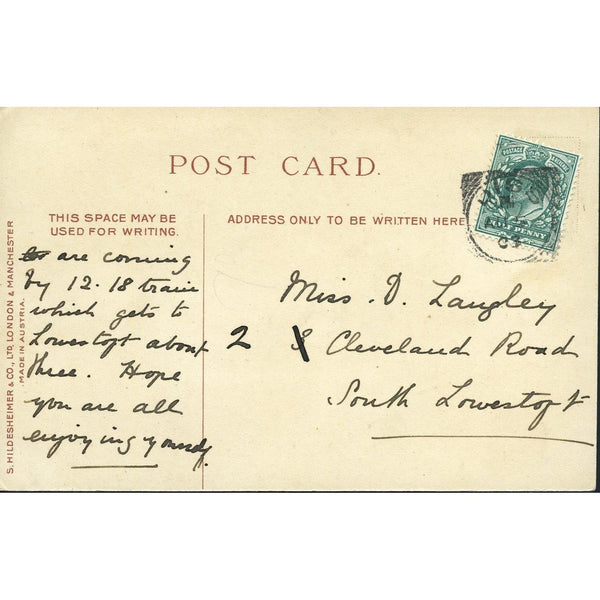 POST CARD.
THIS SPACE MAY BE
USED FOR WRITING.
ADDRESS ONLY TO BE WRITTEN HERE
are coming
by 12.18 train
which gets to
Lowestoft about
three. Hope
you are all
enjoying yourself.
Miss. D. Langley
2 8 Cleveland Road
South Lowestoft
POSTAGE
HALF PENNY
S. HILDESHEIMER & CO., LTD. LONDON & MANCHESTER
MADE IN AUSTRIA.